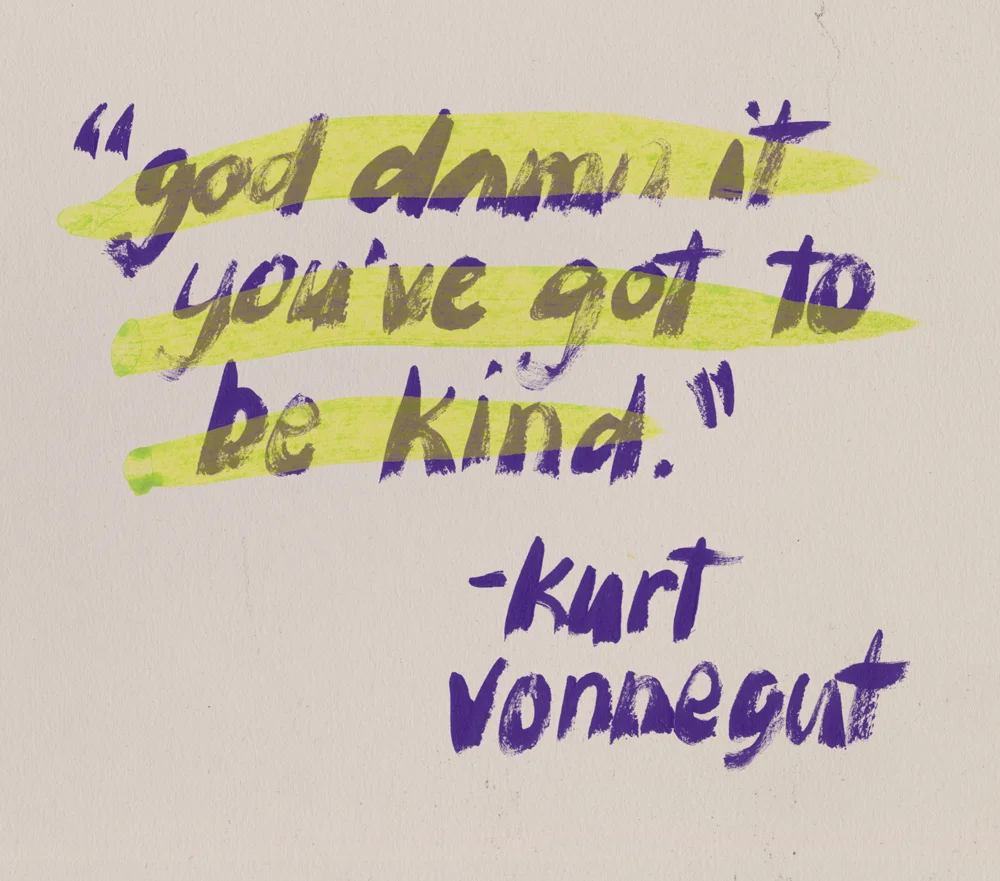 “god damn it
you've got to
be kind.”
-kurt
vonnegut